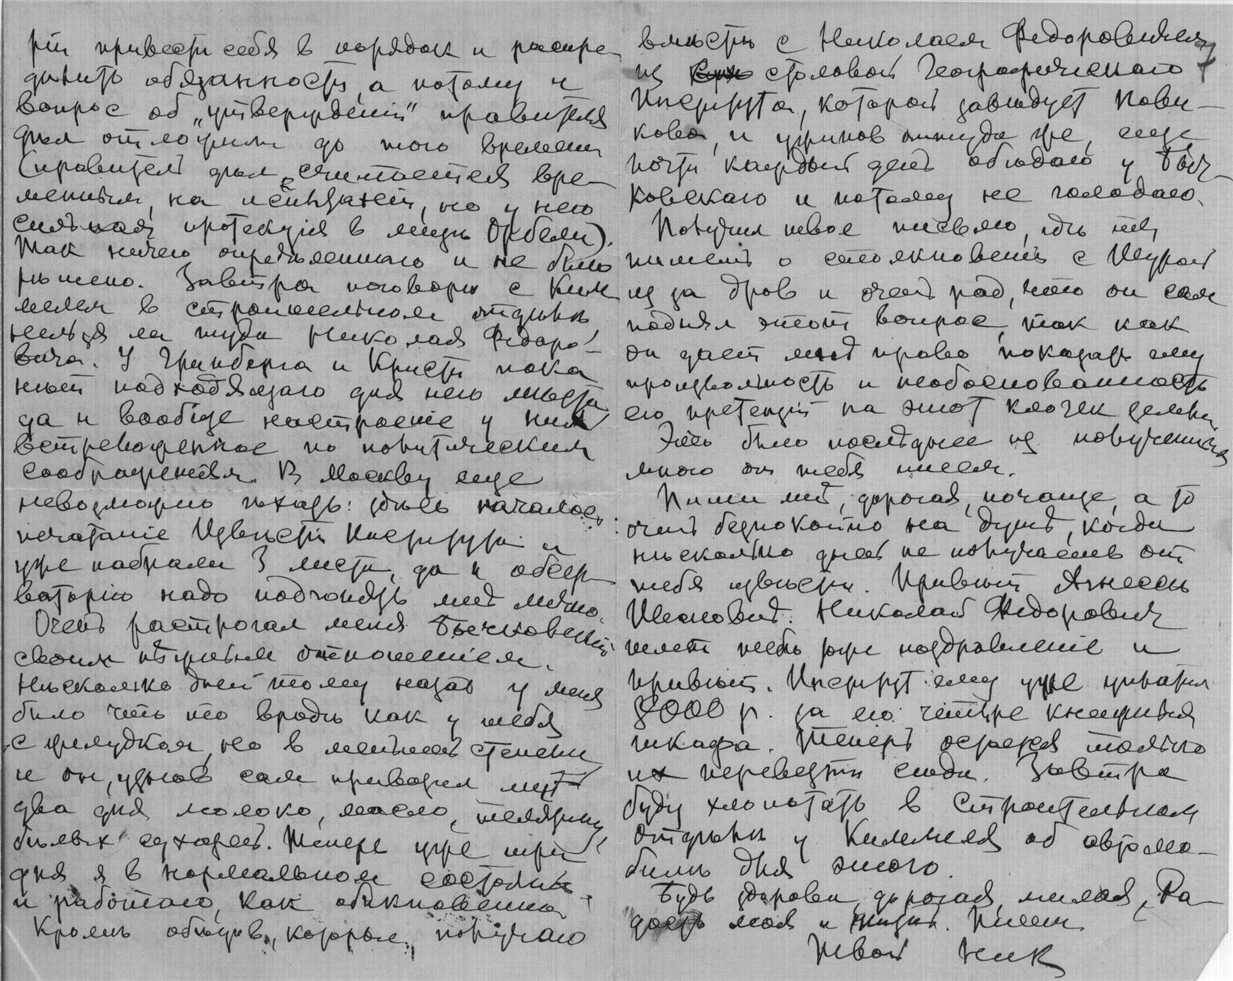 рiи привести себя в порядок и распре-
дѣлить обязанности, а потому и
вопрос об „утвержденiи" правителя
дѣл отложили до того времени
(правитель дѣл считается вре-
менным, на испытанiи, но у него
сильная протекцiя в лицѣ Орбели).
Так ничего опредѣленнаго и не было
рѣшено. Завтра поговорю с Ким
мелем в строительном отдѣлѣ,
нельзя ли туда Николая Федоро-
вича. У Гринберга и Кристи пока
нѣт подходящаго для него мѣста,
да и вообще настроенiе у них
встревоженное по политическим
соображенiям. В Москву еще
невозможно ѣхать: здѣсь началось
печатанiе Извѣстiй Института и
уже набрали 3 листа, да и обсер-
ваторiю надо подтянуть мнѣ лично.
Очень растрогал меня Бычковскiй
своим отношенiем.
Нѣсколько дней тому назад у меня
было что то вродѣ как у тебя
с желудком, но в меньшей степени
и он, узнав, сам привозил мнѣ
два дня молоко, масло, телятину,
бѣлых сухарей. Теперь уже три
дня я в нормальном состоянiи
и работаю, как обыкновенно.
Кромѣ обѣдов, которые получаю
вмѣстѣ с Николаем Федоровичем
из столовой Географическаго
Института, которой завѣдует Нови-
кова, и ужинов оттуда же, еще
почти каждый день обѣдаю у Быч-
ковскаго и потому не голодаю.
Получил твое письмо, гдѣ ты
пишешь о столкновенiи с Шурой
из за дров и очень рад, что он сам
поднял этот вопрос, так как
он дает мнѣ право показать ему
произвольность и необоснованность
его претензiй на этот клочек земли.
Это было послѣднее из полученных
мною от тебя писем.
Пиши мнѣ, дорогая, почаще, а то
очень безпокойно на душѣ, когда
нѣсколько дней не получаешь от
тебя извѣстiй. Привѣт Агнессѣ
Ивановнѣ. Николай Федорович
шлет тебѣ поздравленiе и
привѣт. Институт ему уже уплатил
8000 р. за его четыре книжных
шкафа. Теперь остается только
их перевезти сюда. Завтра
буду хлопотать в Строительном
Отдѣлѣ у Киммеля об автомо-
билѣ для этого.
Будь здорова, дорогая, милая, Ра-
дость моя и жизнь. Пиши
Твой Ник